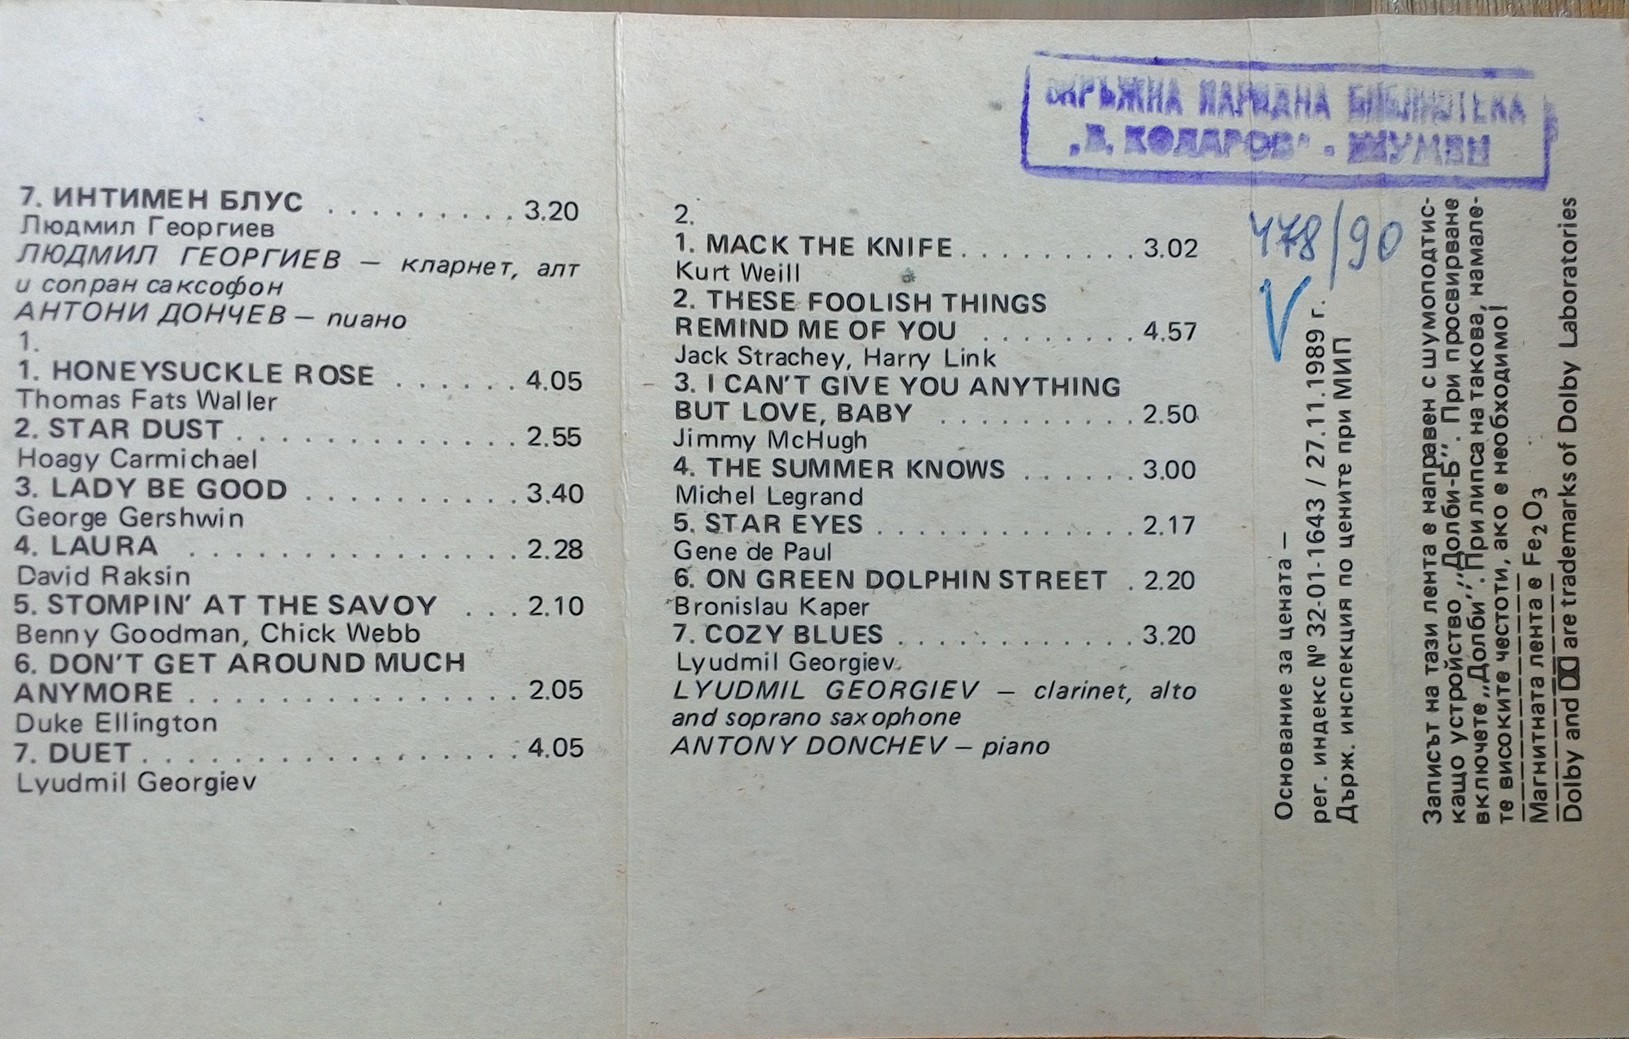 7. ИНТИМЕН БЛУС . . . . . . . . . 3.20
Людмил Георгиев
ЛЮДМИЛ ГЕОРГИЕВ — кларнет, алт
и сопран саксофон
АНТОНИ ДОНЧЕВ — пиано
1.
1. HONEYSUCKLE ROSE . . . . . . 4.05
Thomas Fats Waller
2. STAR DUST . . . . . . . . . . . . . . 2.55
Hoagy Carmichael
3. LADY BE GOOD . . . . . . . . . . 3.40
George Gershwin
4. LAURA . . . . . . . . . . . . . . . . 2.28
David Raksin
5. STOMPIN' AT THE SAVOY . . . 2.10
Benny Goodman, Chick Webb
6. DON'T GET AROUND MUCH
ANYMORE . . . . . . . . . . . . . . . . 2.05
Duke Ellington
7. DUET . . . . . . . . . . . . . . . . . . 4.05
Lyudmil Georgiev
2.
1. MACK THE KNIFE . . . . . . . . . 3.02
Kurt Weill
2. THESE FOOLISH THINGS
REMIND ME OF YOU . . . . . . . . 4.57
Jack Strachey, Harry Link
3. I CAN'T GIVE YOU ANYTHING
BUT LOVE, BABY . . . . . . . . . . 2.50
Jimmy McHugh
4. THE SUMMER KNOWS . . . . . . 3.00
Michel Legrand
5. STAR EYES . . . . . . . . . . . . . 2.17
Gene de Paul
6. ON GREEN DOLPHIN STREET . 2.20
Bronislau Kaper
7. COZY BLUES . . . . . . . . . . . . 3.20
Lyudmil Georgiev
LYUDMIL GEORGIEV — clarinet, alto
and soprano saxophone
ANTONY DONCHEV — piano
ОКРЪЖНА НАРОДНА БИБЛИОТЕКА
„В. КОЛАРОВ" - ШУМЕН
478/90
V
Основание за цената —
рег. индекс № 32-01-1643 / 27.11.1989 г.
Държ. инспекция по цените при МИП
Записът на тази лента е направен с шумоподтис-
кащо устройство „Долби-Б". При просвирване
включете „Долби". При липса на такова, намале-
те високите честоти, ако е необходимо!
Магнитната лента е Fe2O3
Dolby and are trademarks of Dolby Laboratories